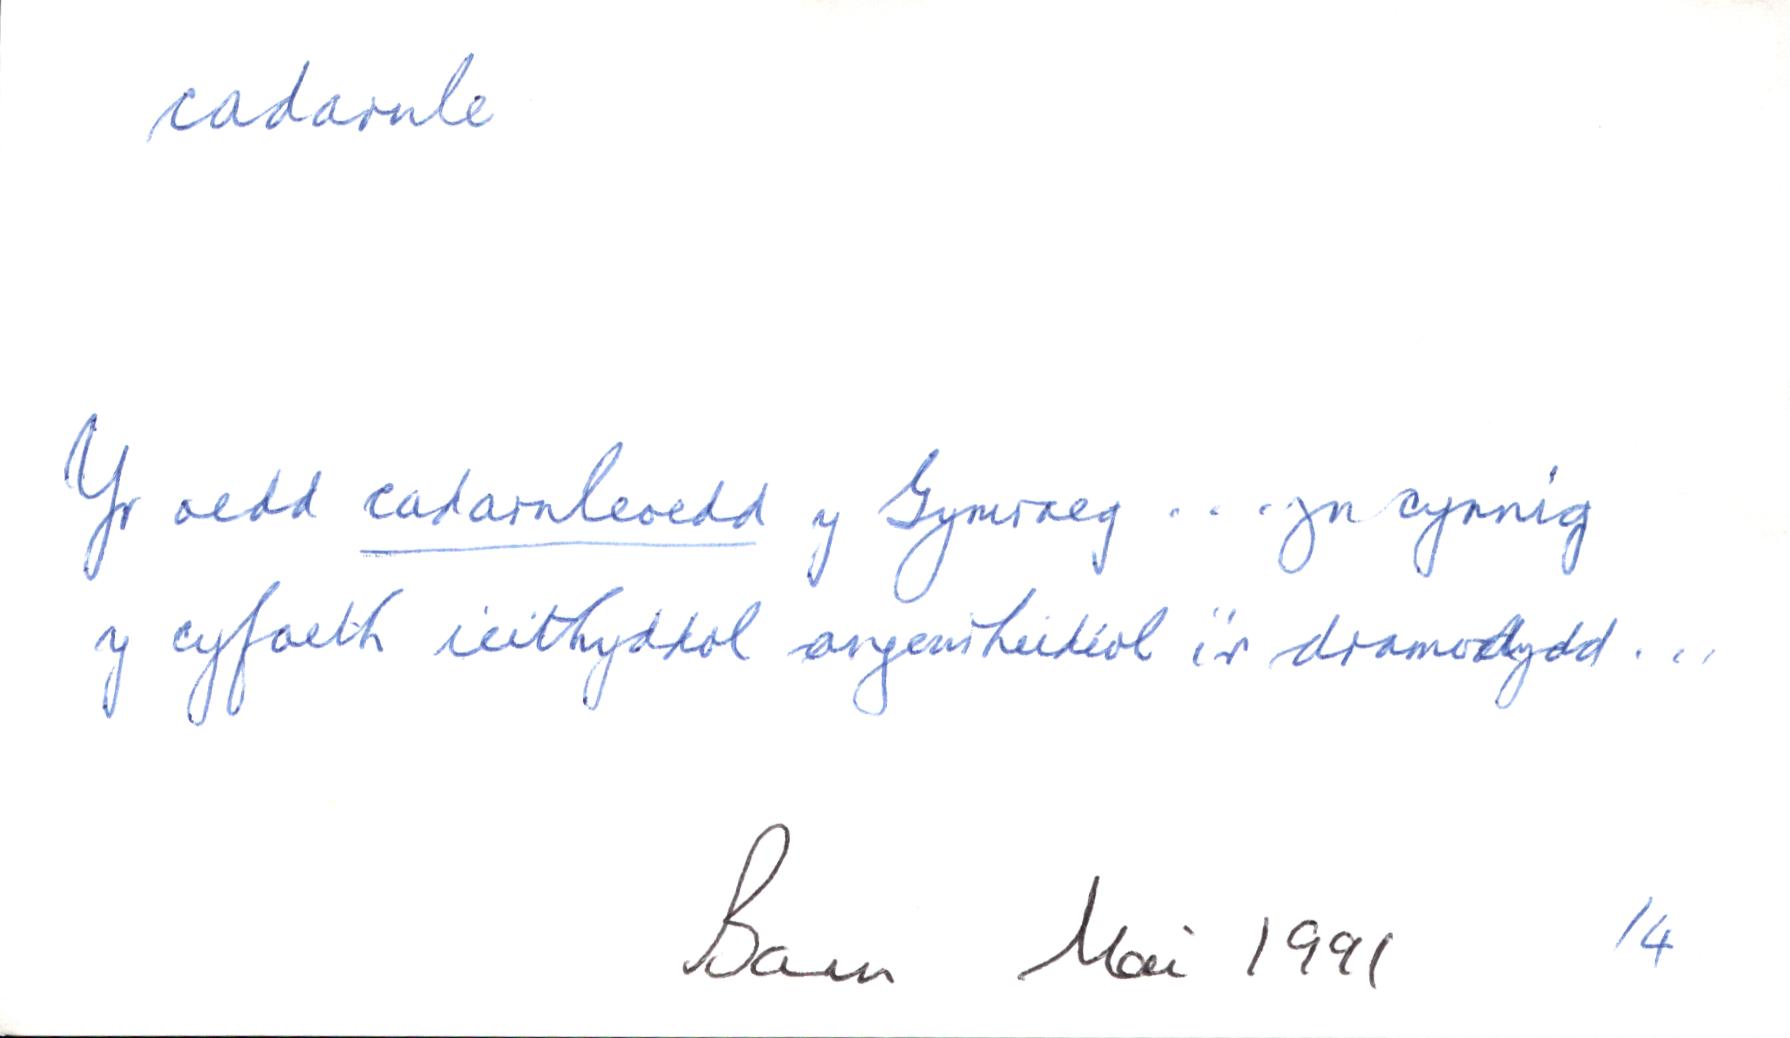 cadarnle
Yr oedd cadarnleoedd y Gymraeg . . . . yn cynnig
y cyfoeth ieithyddol angenrheidiol i'r dramodydd . . .
Barn Mai 1991 /4